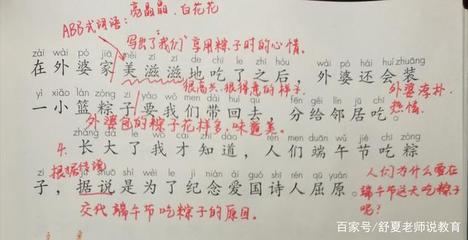 ABB式词语：亮晶晶、白花花
写出了"我们"享用粽子时的心情。
zài wài pó jiā měi zī zī de chī le zhī hòu wài pó hái huì zhuāng
在外婆家美滋滋地吃了之后，外婆还会装
很高兴、很得意的样子。
yì xiǎo lán zòng zi yào wǒ men dài huí qù fēn gěi lín jū chī
一小篮粽子要我们带回去分给邻居吃。
外婆淳朴、热情。
外婆包的粽子花样多，味道美。
zhǎng dà le wǒ cái zhī dào
4. 长大了我才知道，人们端午节吃粽
根据传说
shuō shì wèi le jì niàn ài guó shī rén qū yuán
子，据说是为了纪念爱国诗人屈原。
人们为什么要在端午节这天吃粽子呢？
交代端午节吃粽子的原因。
百家号/舒夏老师说教育